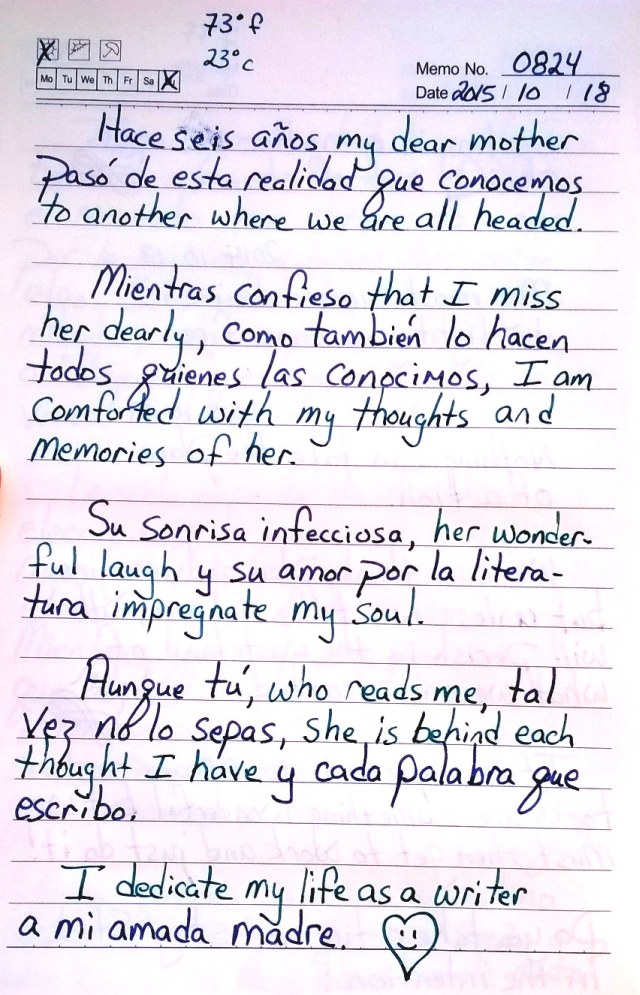 73°f
23°c
Mo Tu We Th Fr Sa
Memo No. 0824
Date 2015 / 10 / 18
Hace seis años my dear mother
pasó de esta realidad que conocemos
to another where we are all headed.
Mientras confieso that I miss
her dearly, como también lo hacen
todos quienes las conocimos, I am
comforted with my thoughts and
memories of her.
Su sonrisa infecciosa, her wonder-
ful laugh y su amor por la litera-
tura impregnate my soul.
Aunque tú, who reads me, tal
vez no lo sepas, she is behind each
thought I have y cada palabra que
escribo.
I dedicate my life as a writer
a mi amada madre.